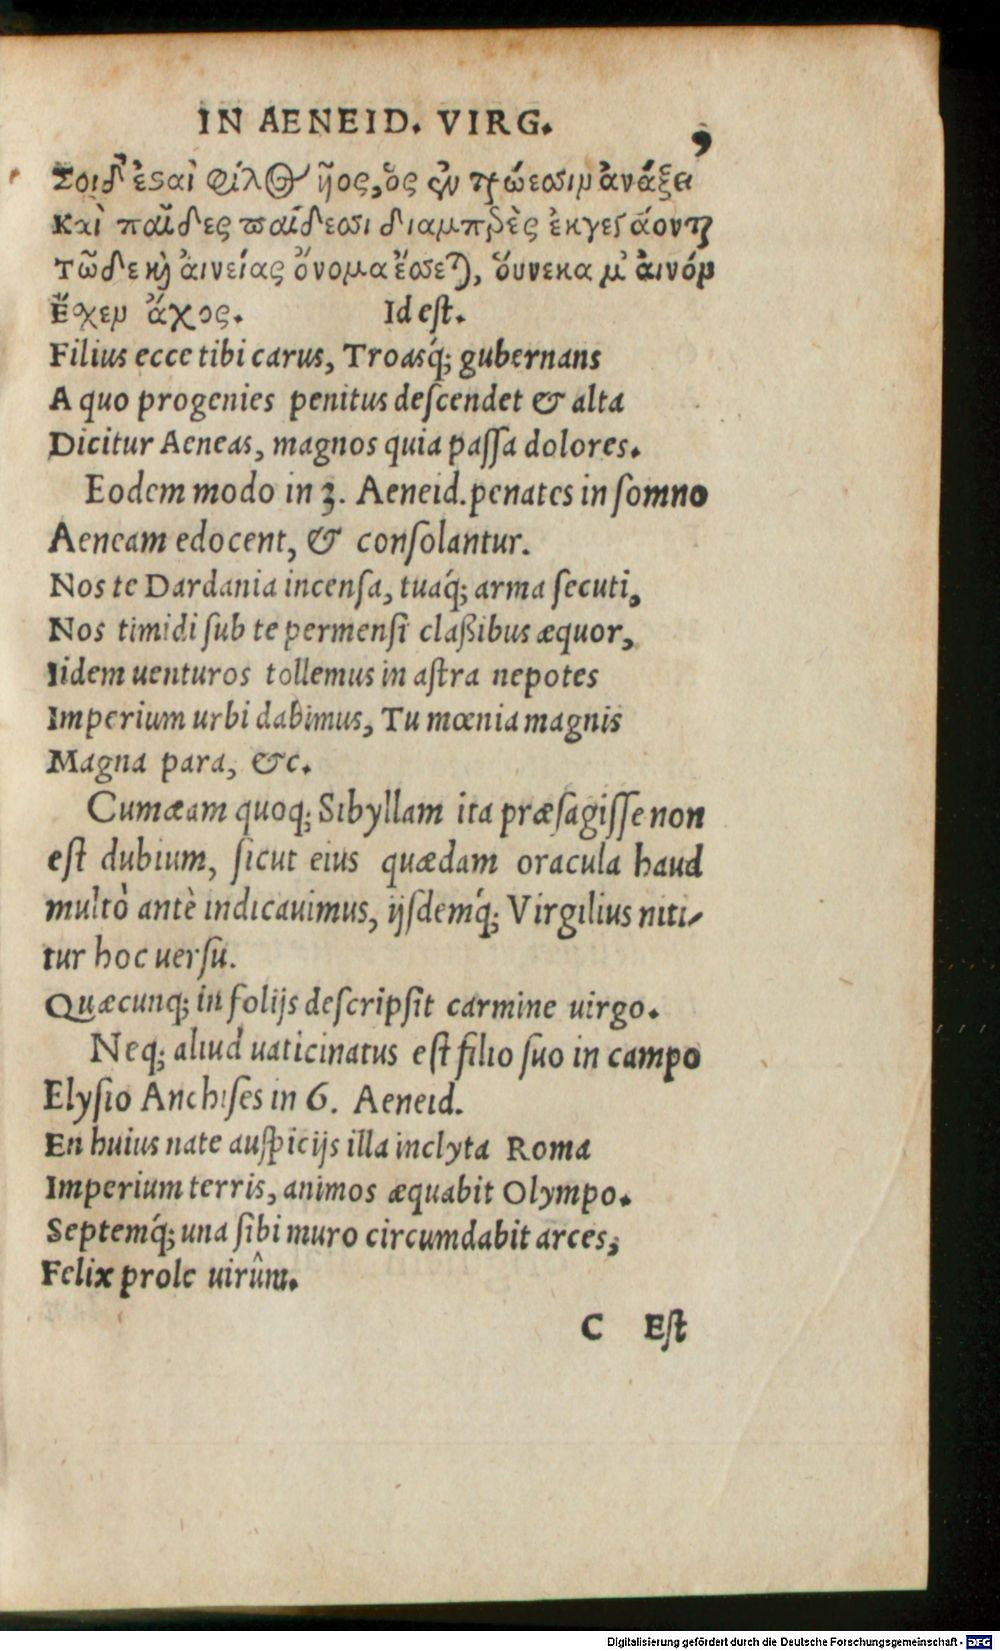 IN AENEID. VIRG. 9
Σοι δ' ἐςαὶ φίλος ἥος, ὃς ἐν τρώεσσιν ἀνάξει
Καὶ παῖδες παίδεσσι διαμπερὲς ἐκγεγάονται
Τῶ δε καὶ αἰνείας ὄνομα ἔσσεται, οὕνεκα μ' αἰνὸν
Ἔσχεν ἄχος. Id eſt.
Filius ecce tibi carus, Troasq́; gubernans
A quo progenies penitus deſcendet & alta
Dicitur Aeneas, magnos quia paſſa dolores.
Eodem modo in 3. Aeneid. penates in ſomno
Aeneam edocent, & conſolantur.
Nos te Dardania incenſa, tuaq́; arma ſecuti,
Nos timidi ſub te permenſi claßibus æquor,
Iidem uenturos tollemus in aſtra nepotes
Imperium urbi dabimus, Tu mœnia magnis
Magna para, &c.
Cumæam quoq; Sibyllam ita præſagiſſe non
eſt dubium, ſicut eius quædam oracula haud
multò antè indicauimus, ijſdemq́; Virgilius niti-
tur hoc uerſu.
Quæcunq; in folijs deſcripſit carmine uirgo.
Neq; aliud uaticinatus eſt filio ſuo in campo
Elyſio Anchiſes in 6. Aeneid.
En huius nate auſpicijs illa inclyta Roma
Imperium terris, animos æquabit Olympo.
Septemq́; una ſibi muro circumdabit arces,
Felix prole uirûm.
C Eſt
Digitalisierung gefördert durch die Deutsche Forschungsgemeinschaft - DFG